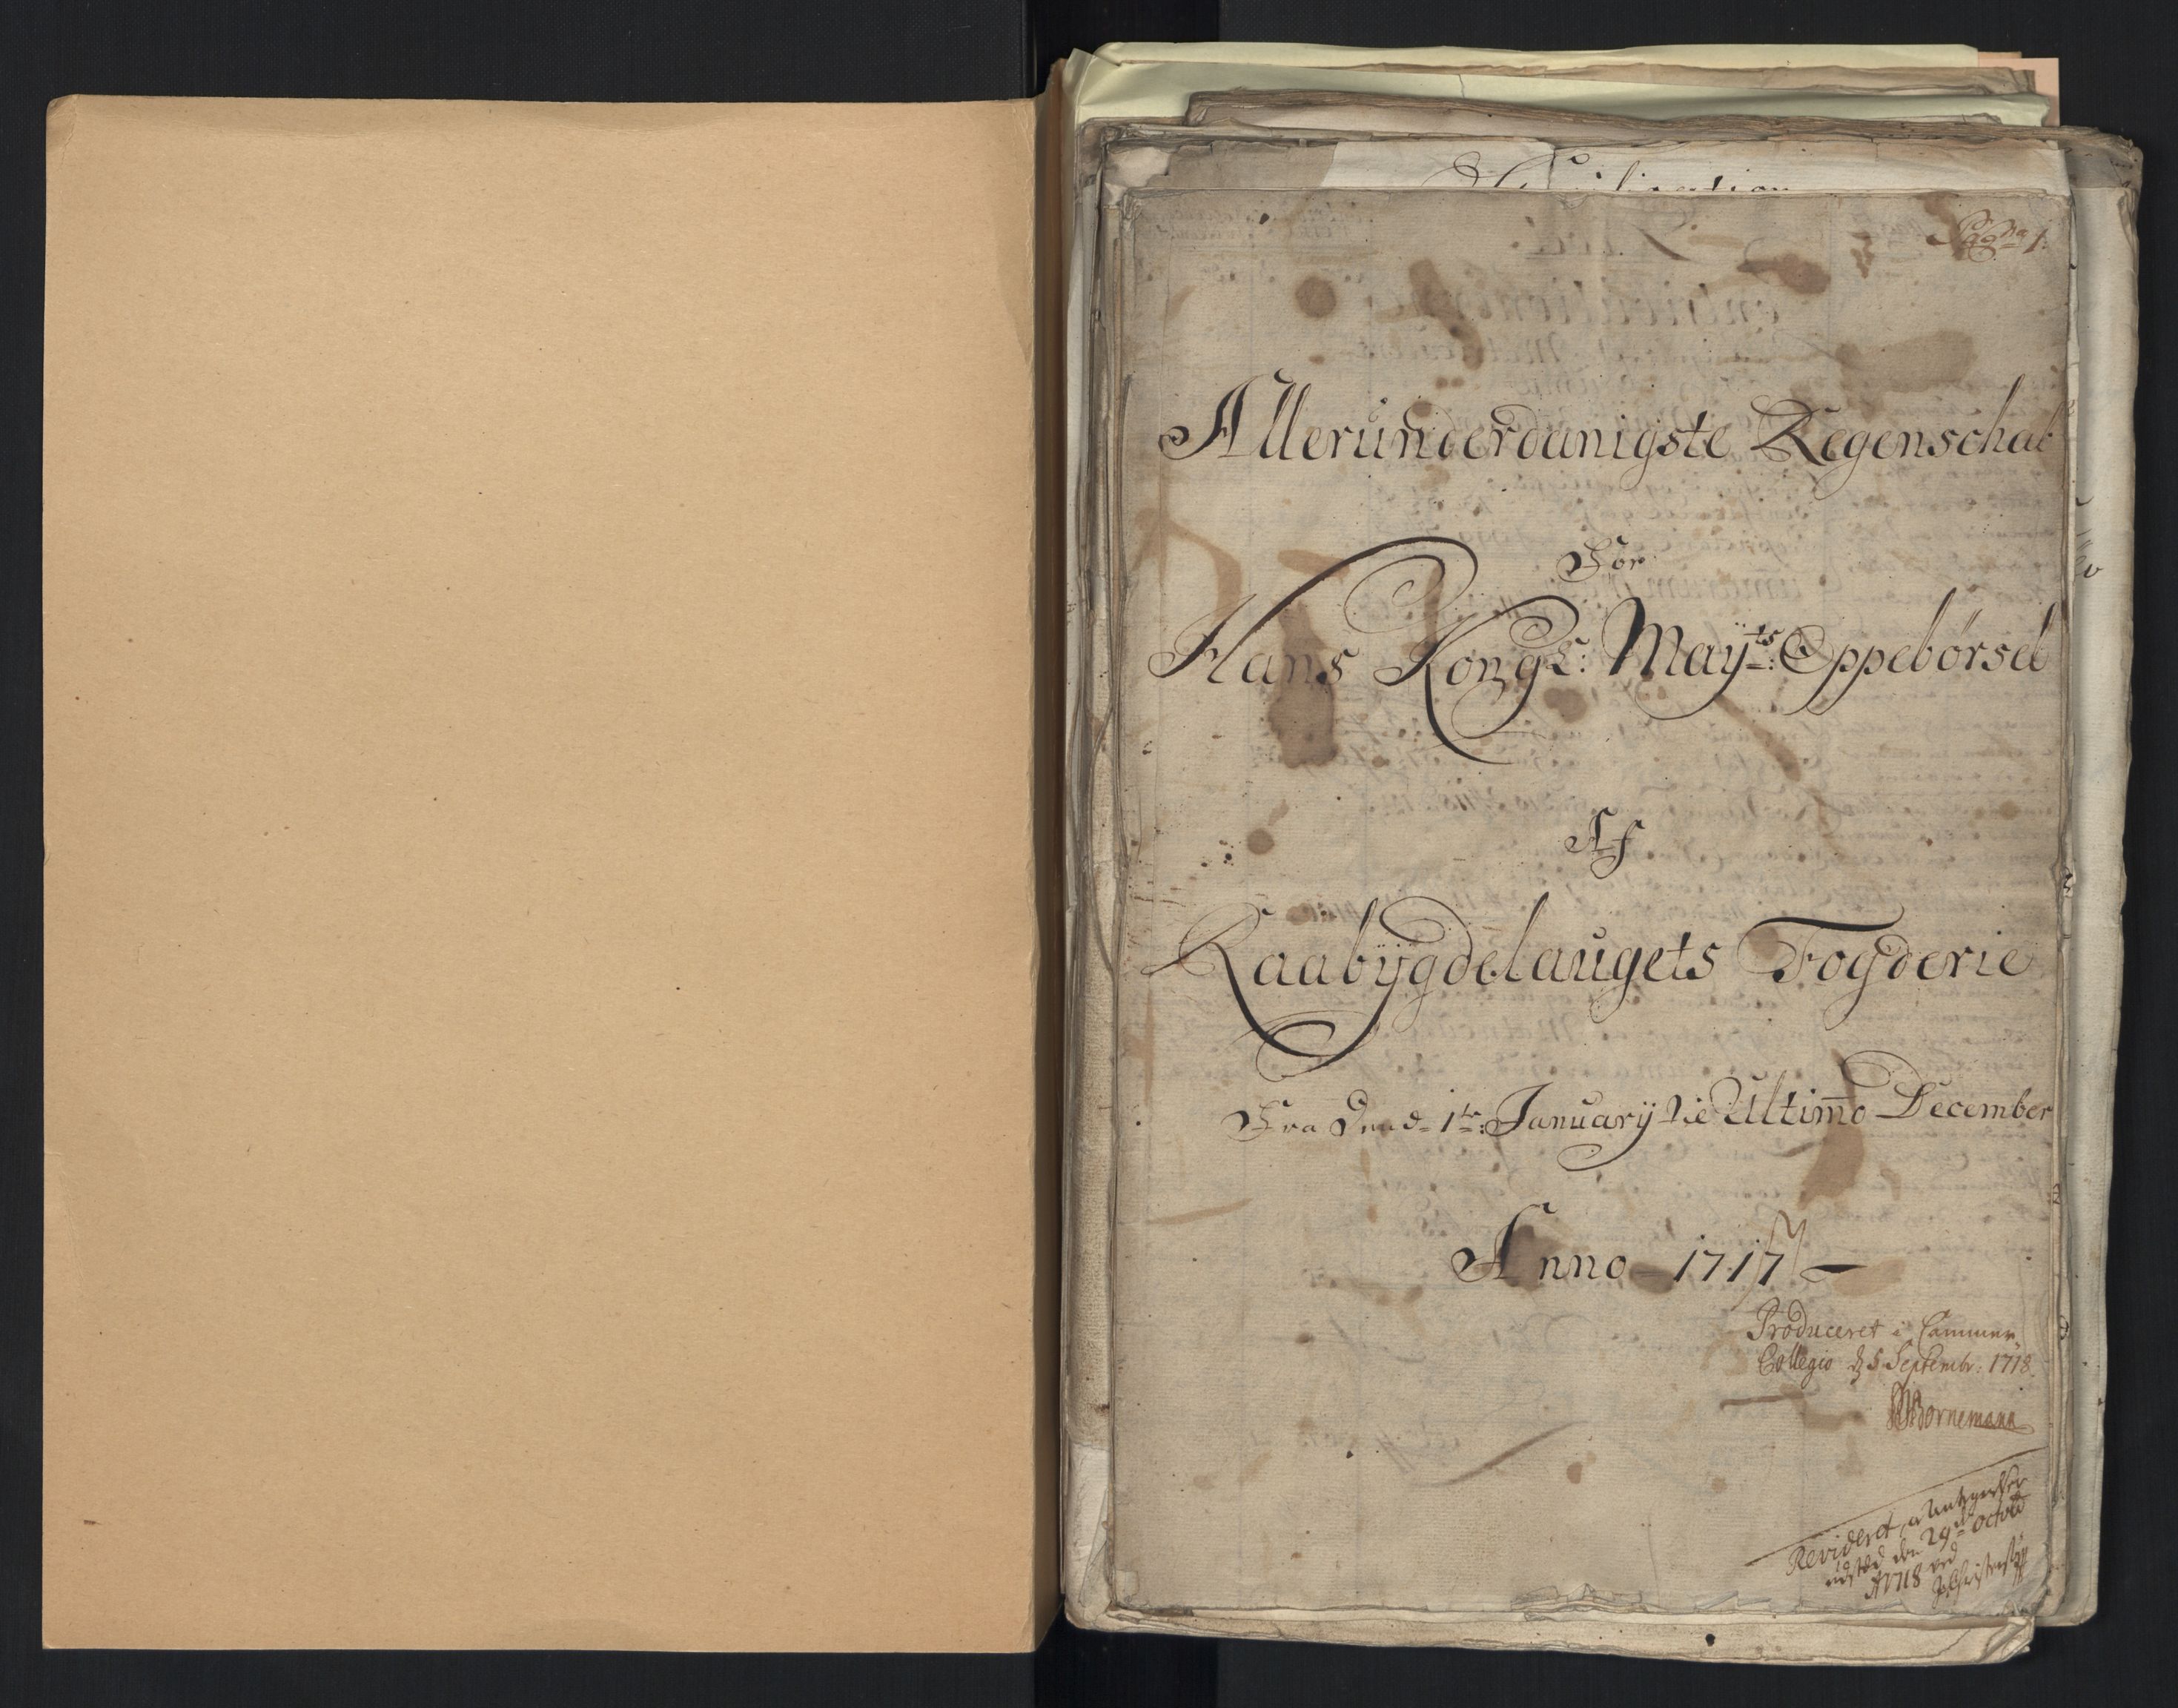 Pag:na 1.
Allerunderdanigste Regenschab
For
Hans Kongl: Mayts: Oppebørsel
Af
Raabÿgdelaugets Fogderie
Fra Dend 1te: Januarÿ til Ultimo December
Anno 1717
Produceret i Cammer
Collegio d 5 Septembr: 1718.
Bornemann
Revideret, a Antegnelser
udsted den 29de Octob
A 1718 ved